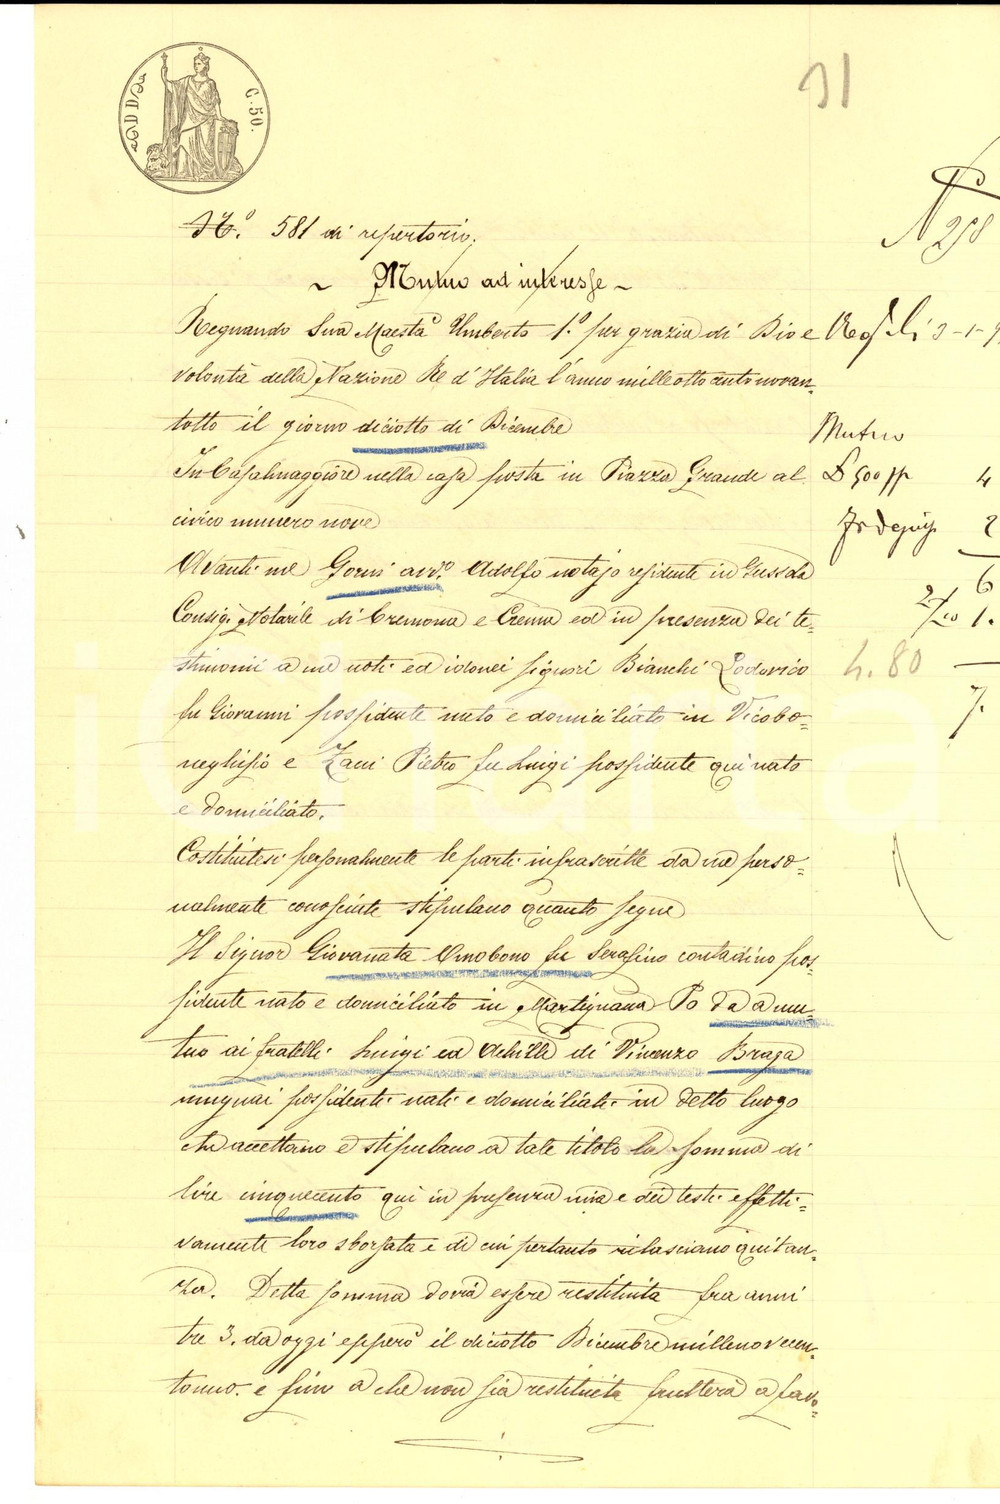 C. 50.
31
N.º 581 di repertorio.
N 258
~ Mutuo ad interesse ~
Regnando Sua Maestà Umberto 1.º per grazia di Dio e
volontà della Nazione Re d'Italia l'anno mille ottocento novan-
totto il giorno diciotto di Dicembre
In Casalmaggiore nella casa posta in Piazza Grande al
civico numero nove
Avanti me Gorni avv.º Adolfo notajo residente in Gussola
Consig. Notarile di Cremona e Crema ed in presenza dei te-
stimonii a me noti ed idonei signori Bianchi Lodovico
fu Giovanni possidente nato e domiciliato in Vicobo-
neghisio e Zani Pietro fu Luigi possidente qui nato
e domiciliato.
Costituitesi personalmente le parti infrascritte da me perso-
nalmente conosciute stipulano quanto segue
Il Signor Giovanata Omobono fu Serafino contadino pos-
sidente nato e domiciliato in Martignana Po dà a mu-
tuo ai fratelli Luigi ed Achille di Vincenzo Braga
mugnai possidenti nati e domiciliati in detto luogo
che accettano e stipulano a tale titolo la somma di
lire cinquecento qui in presenza mia e dei testi effetti-
vamente loro sborsata e di cui pertanto rilasciano quitan-
za. Detta somma dovrà essere restituita fra anni
tre 3. da oggi epperò il diciotto Dicembre millenovecen-
touno. e fino a che non sia restituita frutterà a favo-
Mutuo
500
4
2
6
2/10 1.
4.80
7.